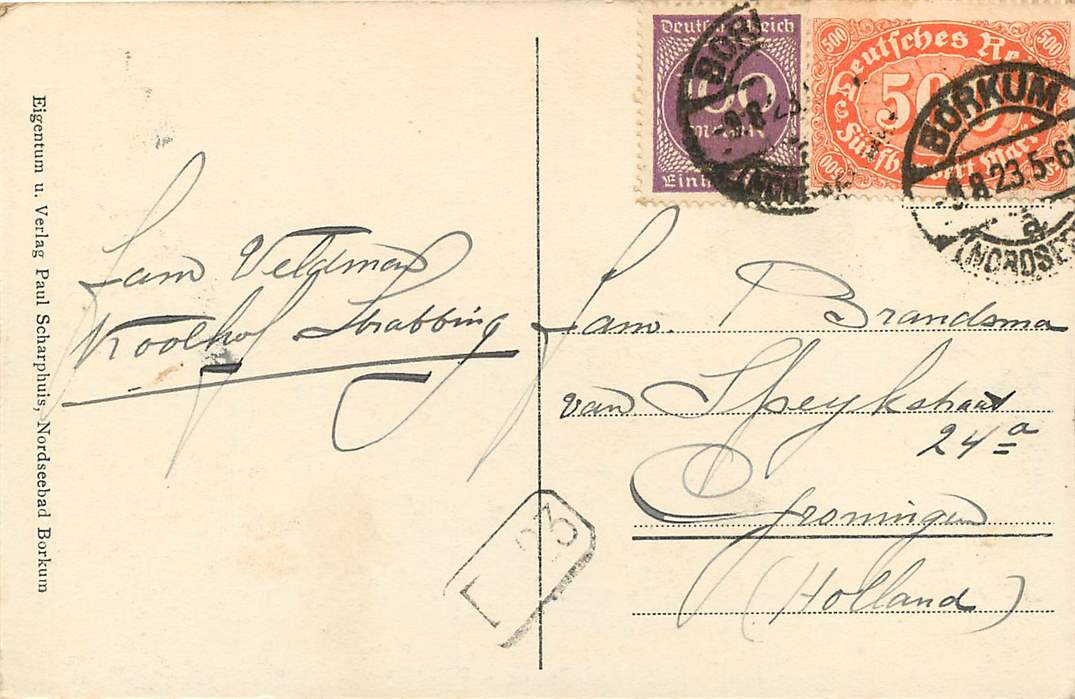 Eigentum u. Verlag Paul Scharphuis, Nordseebad Borkum
Deutsches Reich
100
Mark
500 500
Deutsches Reich
500
Fünfhundert Mark
500
BORKUM
-9.8.23.5-6
a
(NORDSEE
Fam Veldman
Koolhof Strabbing
Fam. Brandsma
van Speykstraat
24a
Groningen
(Holland)